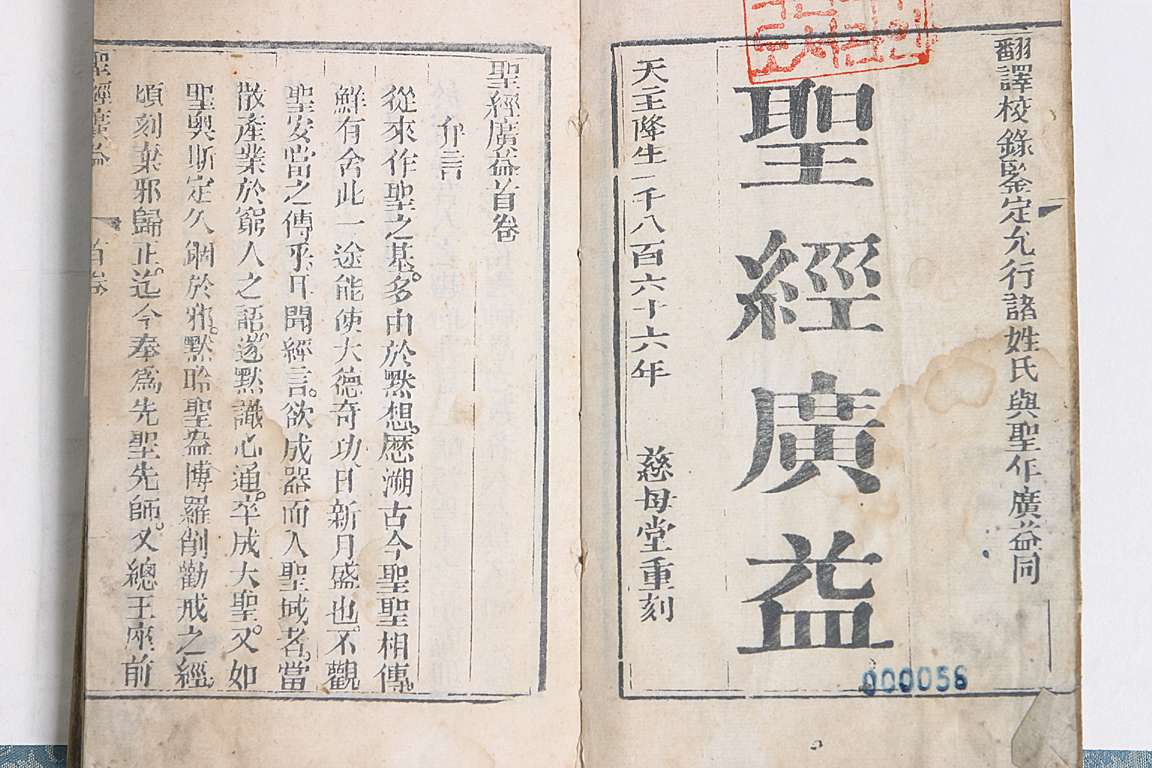 翻譯校錄鑒定允行諸姓氏與聖年廣益同
聖經廣益
天主降生一千八百六十六年 慈母堂重刻
000056
聖經廣益首卷
弁言
從來作聖之基。多由於黙想。歷溯古今聖聖相傳。
鮮有舍此一途能使大德奇功日新月盛也。不觀
聖安當之傳乎。耳聞經言。欲成器而入聖域者。當
散產業於窮人之語。遂黙識心通。卒成大聖。又如
聖奧斯定久錮於邪。黙聆聖盎博羅削勸戒之經
頃刻棄邪歸正。迄今奉爲先聖先師。又總王座前
聖經廣益
首卷